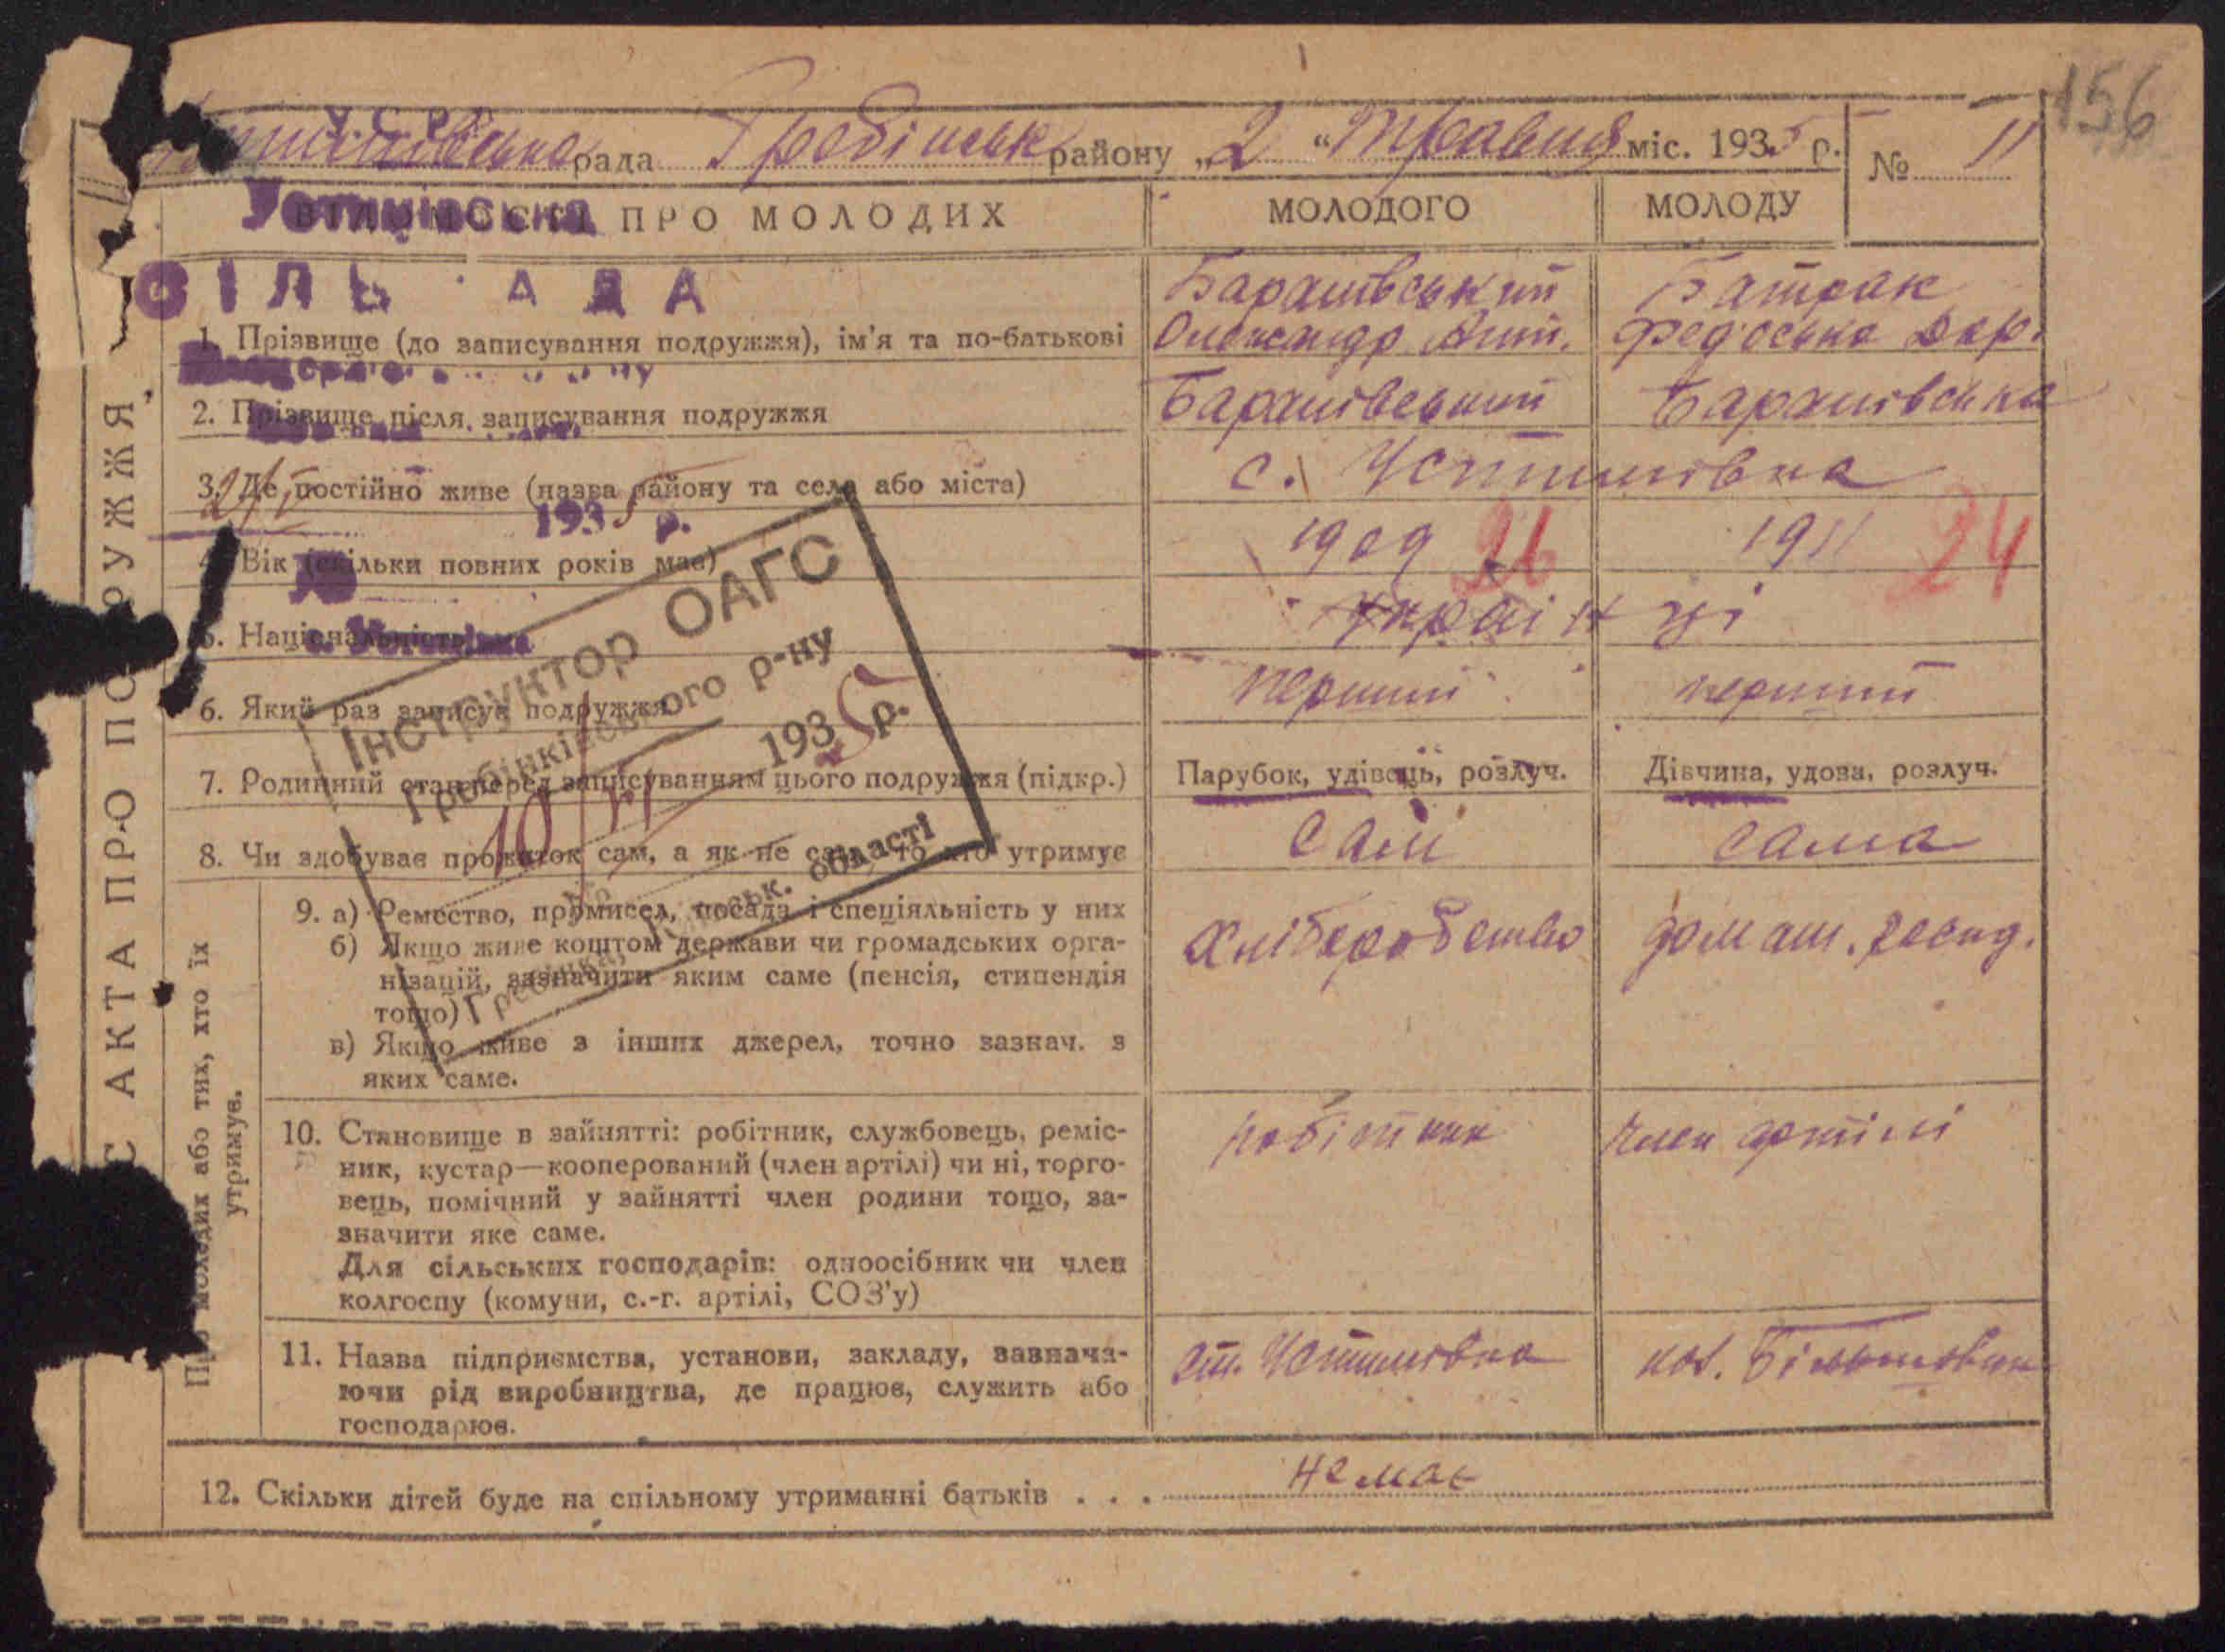 156
У С Р Р
рада Гребінськ району „2“ Травня міс. 1935 р. № 11
Устимівська
ВІДОМОСТІ ПРО МОЛОДИХ МОЛОДОГО МОЛОДУ
СІЛЬ АДА
1. Прізвище (до записування подружжя), ім'я та по-батькові
Барашівський
Олександр Ант.
Батрак
Федоська Дар.
2. Прізвище після записування подружжя Барашівський Барашівська
3. Де постійно живе (назва району та села або міста) с. Устимівка
193 5 р.
4. Вік (скільки повних років має) 1909 26 1911 24
5. Національність українці
с. Устимівка
6. Який раз записує подружжя перший перший
7. Родинний стан перед записуванням цього подружжя (підкр.) Парубок, удівець, розлуч. Дівчина, удова, розлуч.
8. Чи здобуває прожиток сам, а як не сам, то хто утримує сам сама
Інструктор ОАГС
Гребінківського р-ну
10/VI 1935 р.
№
Гребінка, Київськ. області
АКТА ПРО ПОДРУЖЖЯ
Про молодих або тих, хто їх
утримує.
9. а) Ремество, промисел, посада і спеціяльність у них
б) Якщо живе коштом держави чи громадських орга-
нізацій, зазначити яким саме (пенсія, стипендія
тощо)
в) Якщо живе з інших джерел, точно зазнач. з
яких саме.
хліборобство домаш. госпд.
10. Становище в зайнятті: робітник, службовець, реміс-
ник, кустар—кооперований (член артілі) чи ні, торго-
вець, помічний у зайнятті член родини тощо, за-
значити яке саме.
Для сільських господарів: одноосібник чи член
колгоспу (комуни, с.-г. артілі, СОЗ'у)
робітник член артілі
11. Назва підприємства, установи, закладу, зазнача-
ючи рід виробництва, де працює, служить або
господарює.
ст. Устимівка кол. Більшовик
12. Скільки дітей буде на спільному утриманні батьків . . . немає